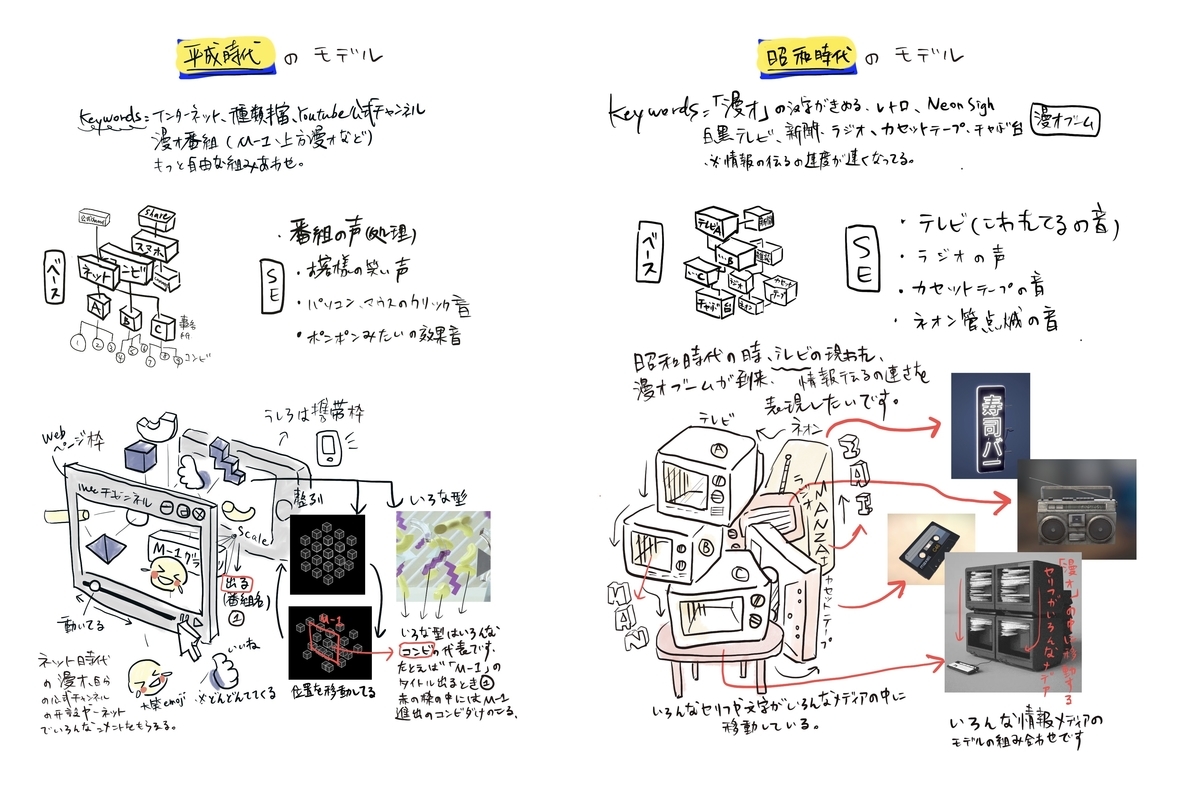 平成時代 の モデル
Keywords = インターネット、種類豊富、Youtube公式チャンネル
漫才番組 (M-1、上方漫才など)
もっと自由な組みあわせ。
share
スマホ
コンビ
ネット
A
B
C
コンビ
ベース
SE
・番組の声(処理)
・お客様の笑い声
・パソコン、マウスのクリック音
・ポンポンみたいの効果音
Web
ページ枠
うしろは携帯枠
整列
いろな型
scale
M-1グラ
出る
(番組名)
①
動いてる
M-1
位置を移動してる
いろな型はいろんな
コンビの代表です。
たとえば「M-1」の
タイトル出るとき①
赤の枠の中にはM-1
進出のコンビだけのこる。
いいね
大笑emoji
※どんどんでてくる
ネット時代
の漫才、自ら
の公式チャンネル
の开設やーネット
でいろんなコメントをもらえる。
昭和時代 の モデル
Keywords = 「漫才」の漢字がきめる、レトロ、Neon Sigh
白黒テレビ、新聞、ラジオ、カセットテープ、チャぶ台
漫才ブーム
※情報の伝るの速度が速くなってる。
ベース
テレビA
〃B
〃C
ラジオ
カセットテープ
チャぶ台
ネオン
SE
・テレビ(こわれてるの音)
・ラジオの声
・カセットテープの音
・ネオン管点滅の音
昭和時代の時、テレビの現われ、
漫才ブームが到来、情報伝るの速さを
表現したいです。
テレビ
ネオン
A
B
C
ラジオ
MANZAI
カセットテープ
ZAI
MAN
寿司バー
「漫才」の中に移動する
セリフがいろんなメディア
いろんなセリフや文字がいろんなメディアの中に
移動している。
いろんな情報メディアの
モデルの組み合わせです